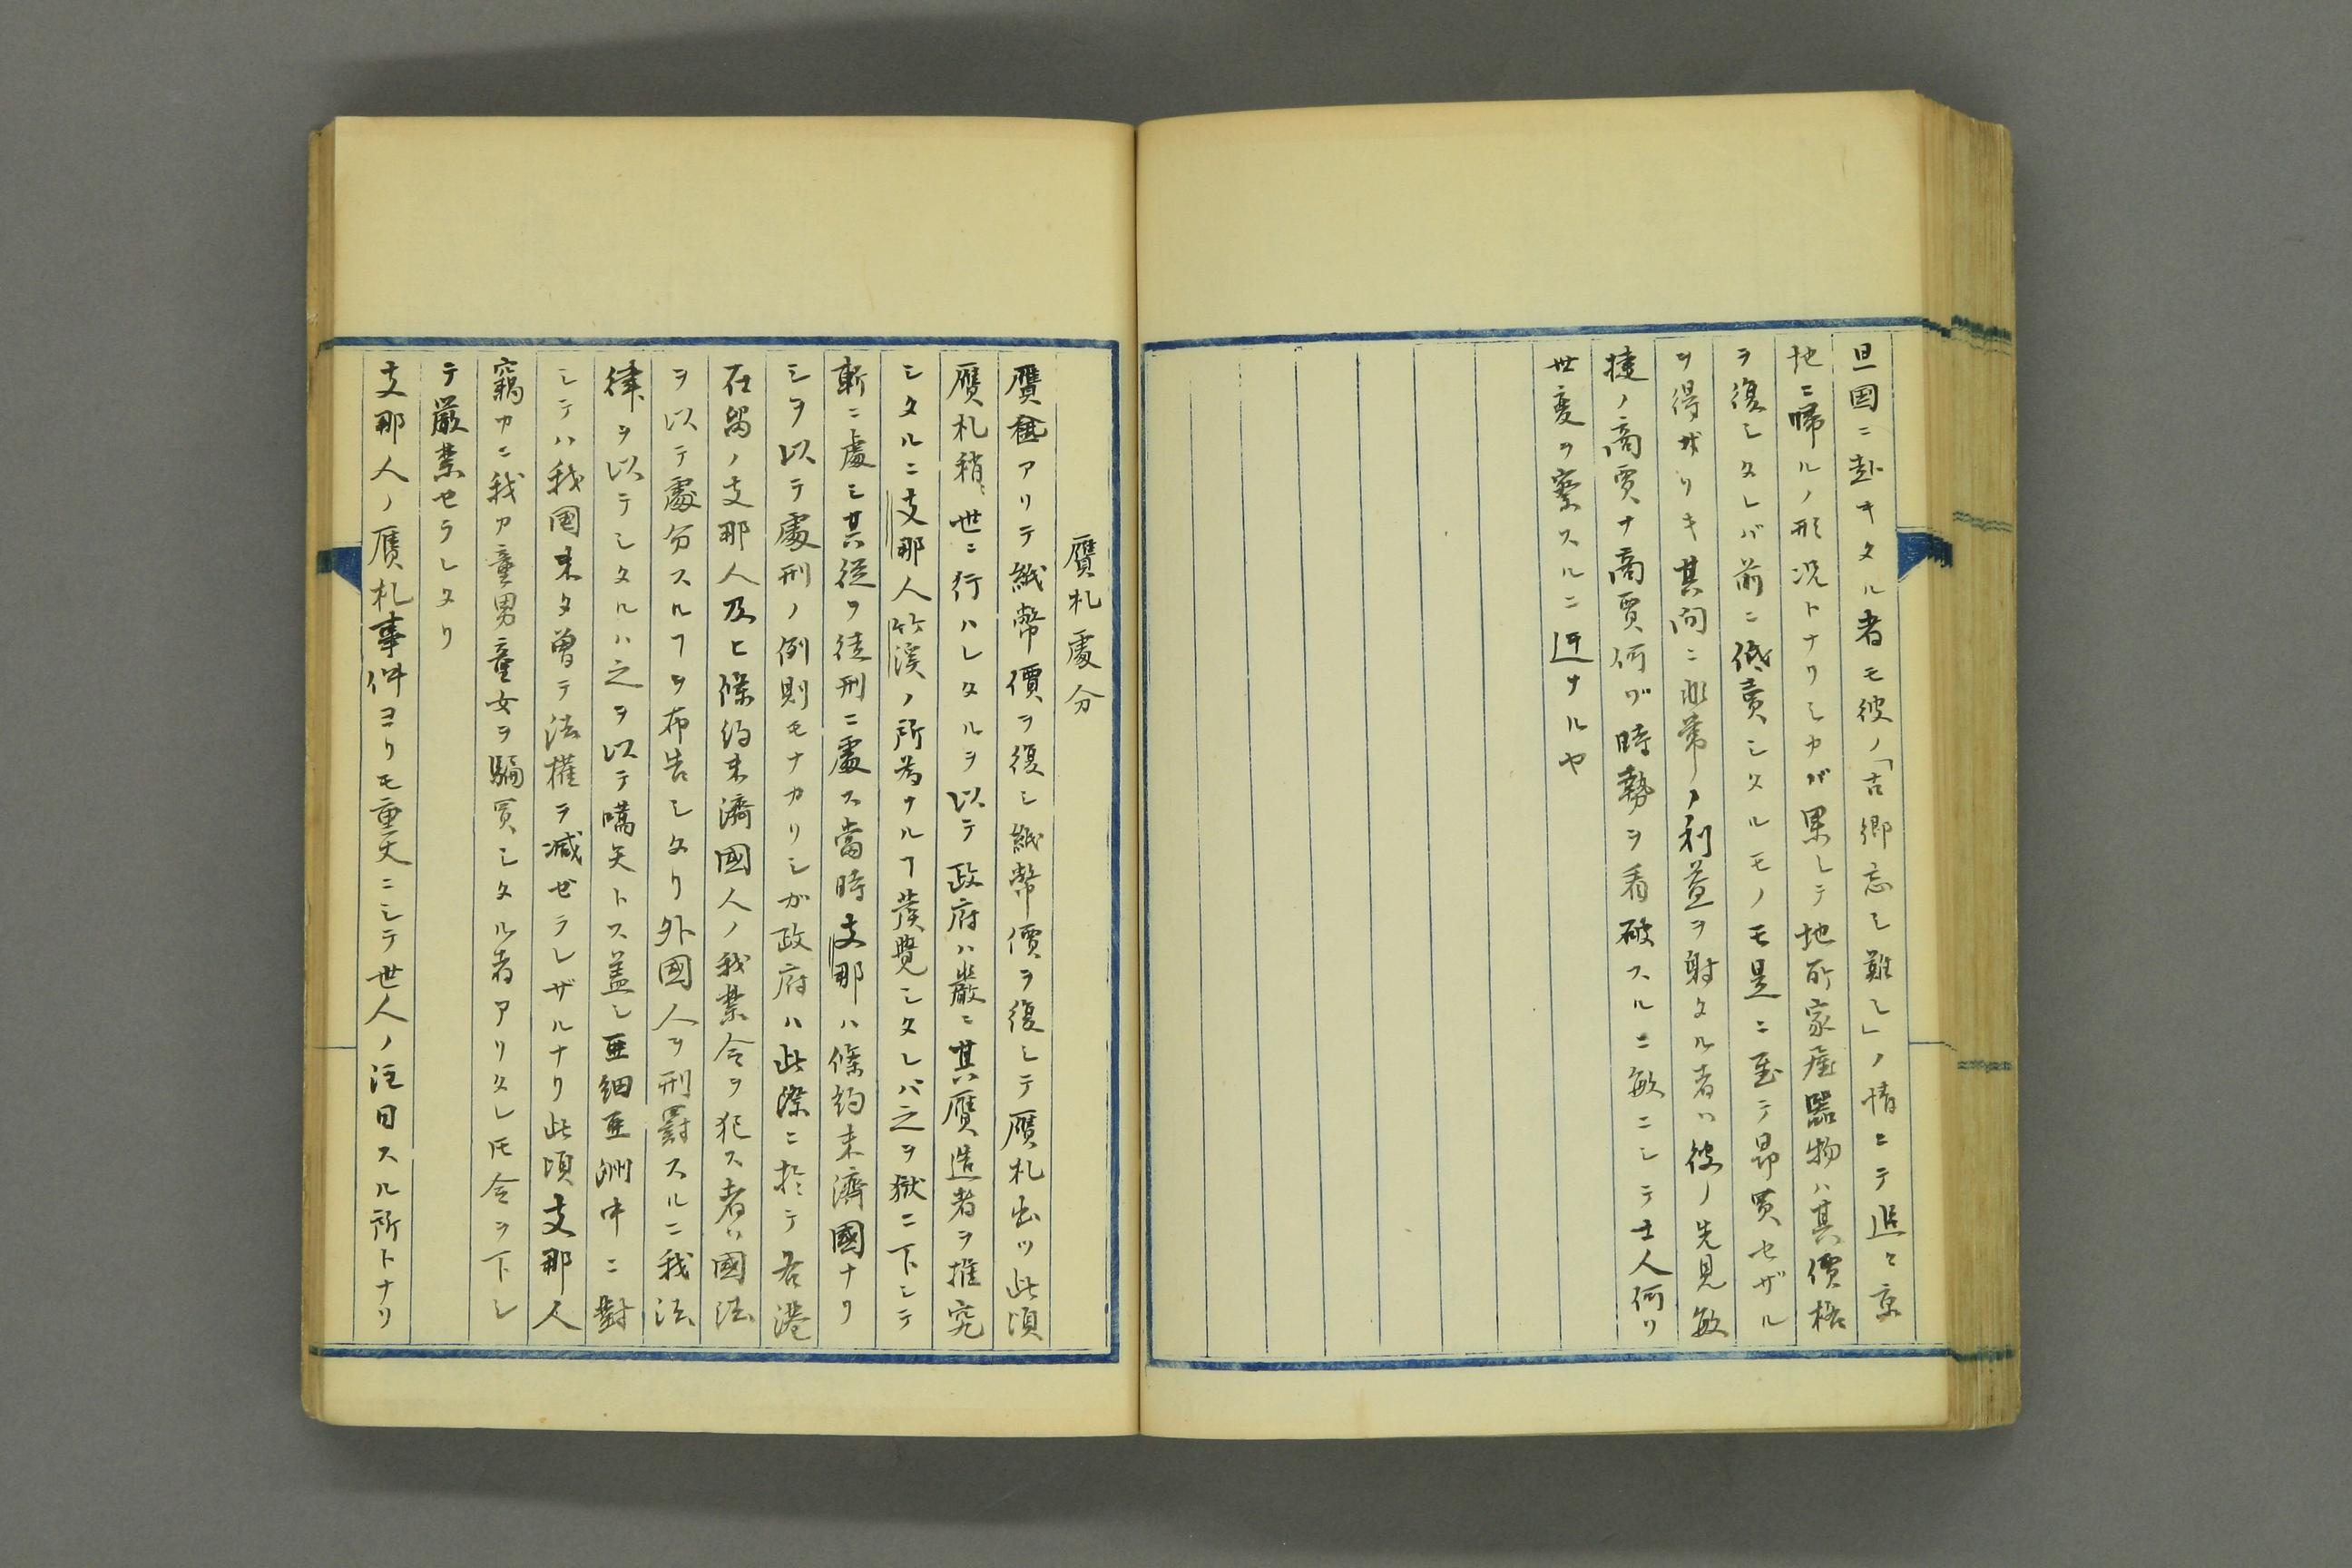 旦国ニ赴キタル者モ彼ノ「古郷忘レ難シ」ノ情ニテ追々京
地ニ帰ルノ形况トナリシカバ果シテ地所家産器物ハ其價格
ヲ復シタレバ前ニ低賣シタルモノモ是ニ至テ昂買セザル
ヲ得ザリキ其间ニ非常ノ利益ヲ射タル者ハ彼ノ先見敏
捷ノ商賈ナ商賈何ゾ時勢ヲ看破スルニ敏ニシテ士人何ゾ
世变ヲ察スルニ迂ナルヤ
贋札處分
贋金アリテ紙幣價ヲ復シ紙幣價ヲ復シテ贋札出ツ此頃
贋札稍々世ニ行ハレタルヲ以テ政府ハ嚴ニ其贋造者ヲ推究
シタルニ支那人竹溪ノ所為ナルヿ発覺シタレバ之ヲ獄ニ下シテ
斬ニ處シ其従ヲ徒刑ニ處ス當時支那ハ條約未濟國ナリ
シヲ以テ處刑ノ例則モナカリシガ政府ハ此際ニ於テ各港
在留ノ支那人及ヒ條約未濟國人ノ我禁令ヲ犯ス者ハ國法
ヲ以テ處分スルヿヲ布告シタリ外國人ヲ刑罰スルニ我法
律ヲ以テシタルハ之ヲ以テ嚆矢トス盖シ亜細亜洲中ニ對
シテハ我國未タ曽テ法權ヲ减ゼラレザルナリ此頃支那人
竊カニ我カ童男童女ヲ騙買シタル者アリタレ𪜈令ヲ下シ
テ厳禁セラレタリ
支那人ノ贋札事件ヨリモ重大ニシテ世人ノ注目スル所トナリ